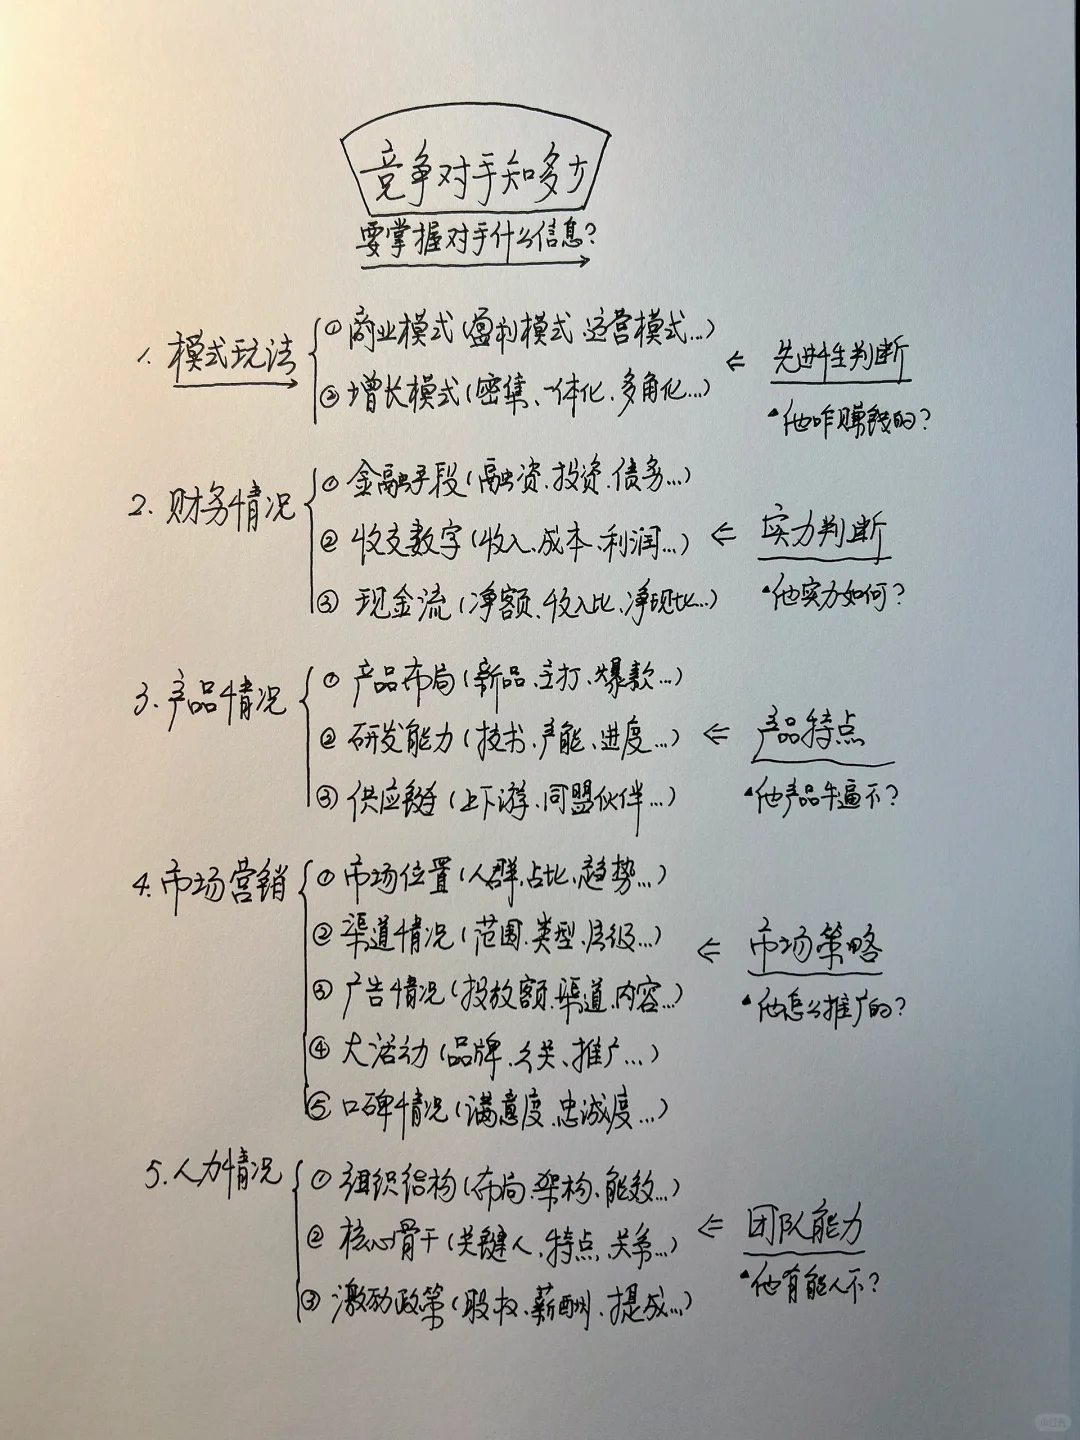 竞争对手知多少
要掌握对手什么信息?
1. 模式玩法
① 商业模式(盈利模式、运营模式...)
② 增长模式(密集、一体化、多角化...)
⇐ 先进性判断
▲他咋赚钱的?
2. 财务情况
① 金融手段(融资、投资、债务...)
② 收支数字(收入、成本、利润...)
③ 现金流(净额、收入比、净现比...)
⇐ 实力判断
▲他实力如何?
3. 产品情况
① 产品布局(新品、主打、爆款...)
② 研发能力(技术、产能、进度...)
③ 供应链(上下游、同盟伙伴...)
⇐ 产品特点
▲他产品牛逼不?
4. 市场营销
① 市场位置(人群、占比、趋势...)
② 渠道情况(范围、类型、层级...)
③ 广告情况(投放额、渠道、内容...)
④ 大活动(品牌、公关、推广...)
⑤ 口碑情况(满意度、忠诚度...)
⇐ 市场策略
▲他怎么推广的?
5. 人力情况
① 组织结构(布局、架构、能效...)
② 核心骨干(关键人、特点、关系...)
③ 激励政策(股权、薪酬、提成...)
⇐ 团队能力
▲他有能人不?